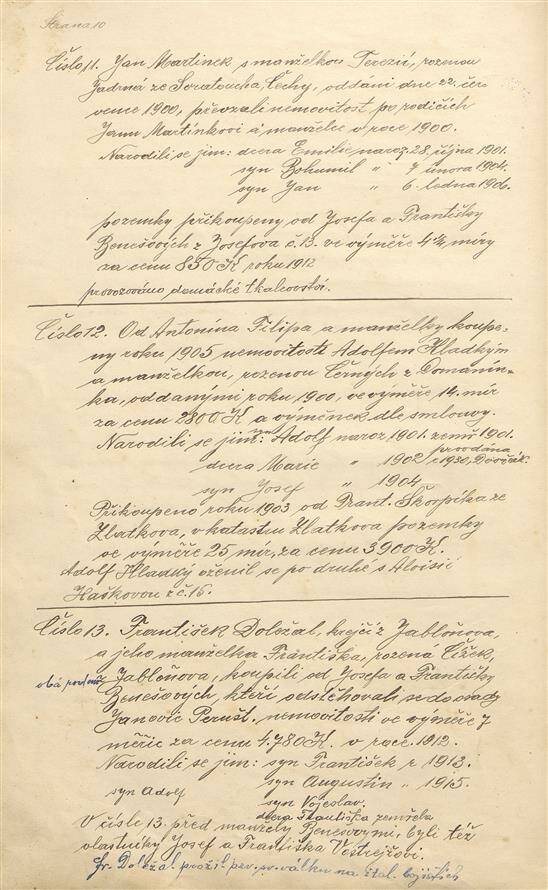 Strana 10
Číslo 11. Jan Martinek s manželkou Terezií, rozenou
Jadrná ze Svratoucha, Čechy, oddáni dne 22. čer-
vence 1900, převzali nemovitost po rodičích
Janu Martinkovi a manželce v roce 1900.
Narodili se jim: dcera Emilie naroz. 28. října 1901.
syn Bohumil " 7 února 1904.
syn Jan " 6. ledna 1906.
pozemky přikoupeny od Josefa a Františky
Benešových z Josefova č. 13. ve výměře 4 1/4 míry
za cenu 850 K roku 1912
provozováno domácké tkalcovství.
Číslo 12. Od Antonína Filipa a manželky koupe-
ny roku 1905 nemovitosti Adolfem Hladkým
a manželkou, rozenou Černých z Domanín-
ka, oddanými roku 1900, ve výměře 14. mír
za cenu 2800 K a výměnek dle smlouvy.
Narodili se jim: syn Adolf naroz 1901. zemř 1901.
dcera Marie " 1902 provdána r 1930,
syn Josef " 1904
Přikoupeno roku 1903 od Frant. Škorpíka ze
Zlatkova, v katastru Zlatkova pozemky
ve výměře 25 mír, za cenu 3900 K.
Adolf Hladký oženil se po druhé s Aloisií
Haškovou z č. 16.
Číslo 13. František Doležal, krejčí z Jabloňova,
a jeho manželka Františka, rozená Čížek,
z Jabloňova, koupili od Josefa a Františky
Benešových, kteří odstěhovali se do osady
Janovic Perušt., nemovitosti ve výměře 7
měřic za cenu 4.780 K. v roce 1912.
Narodili se jim: syn František r 1913.
syn Adolf syn Augustin " 1915.
syn Vojeslav.
dcera Františka zemřela
V čísle 13. před manžely Benešovými, byli též
vlastníky Josef a Františka
Fr. Doležal prožil prv. sv. válku na ital. bojištích